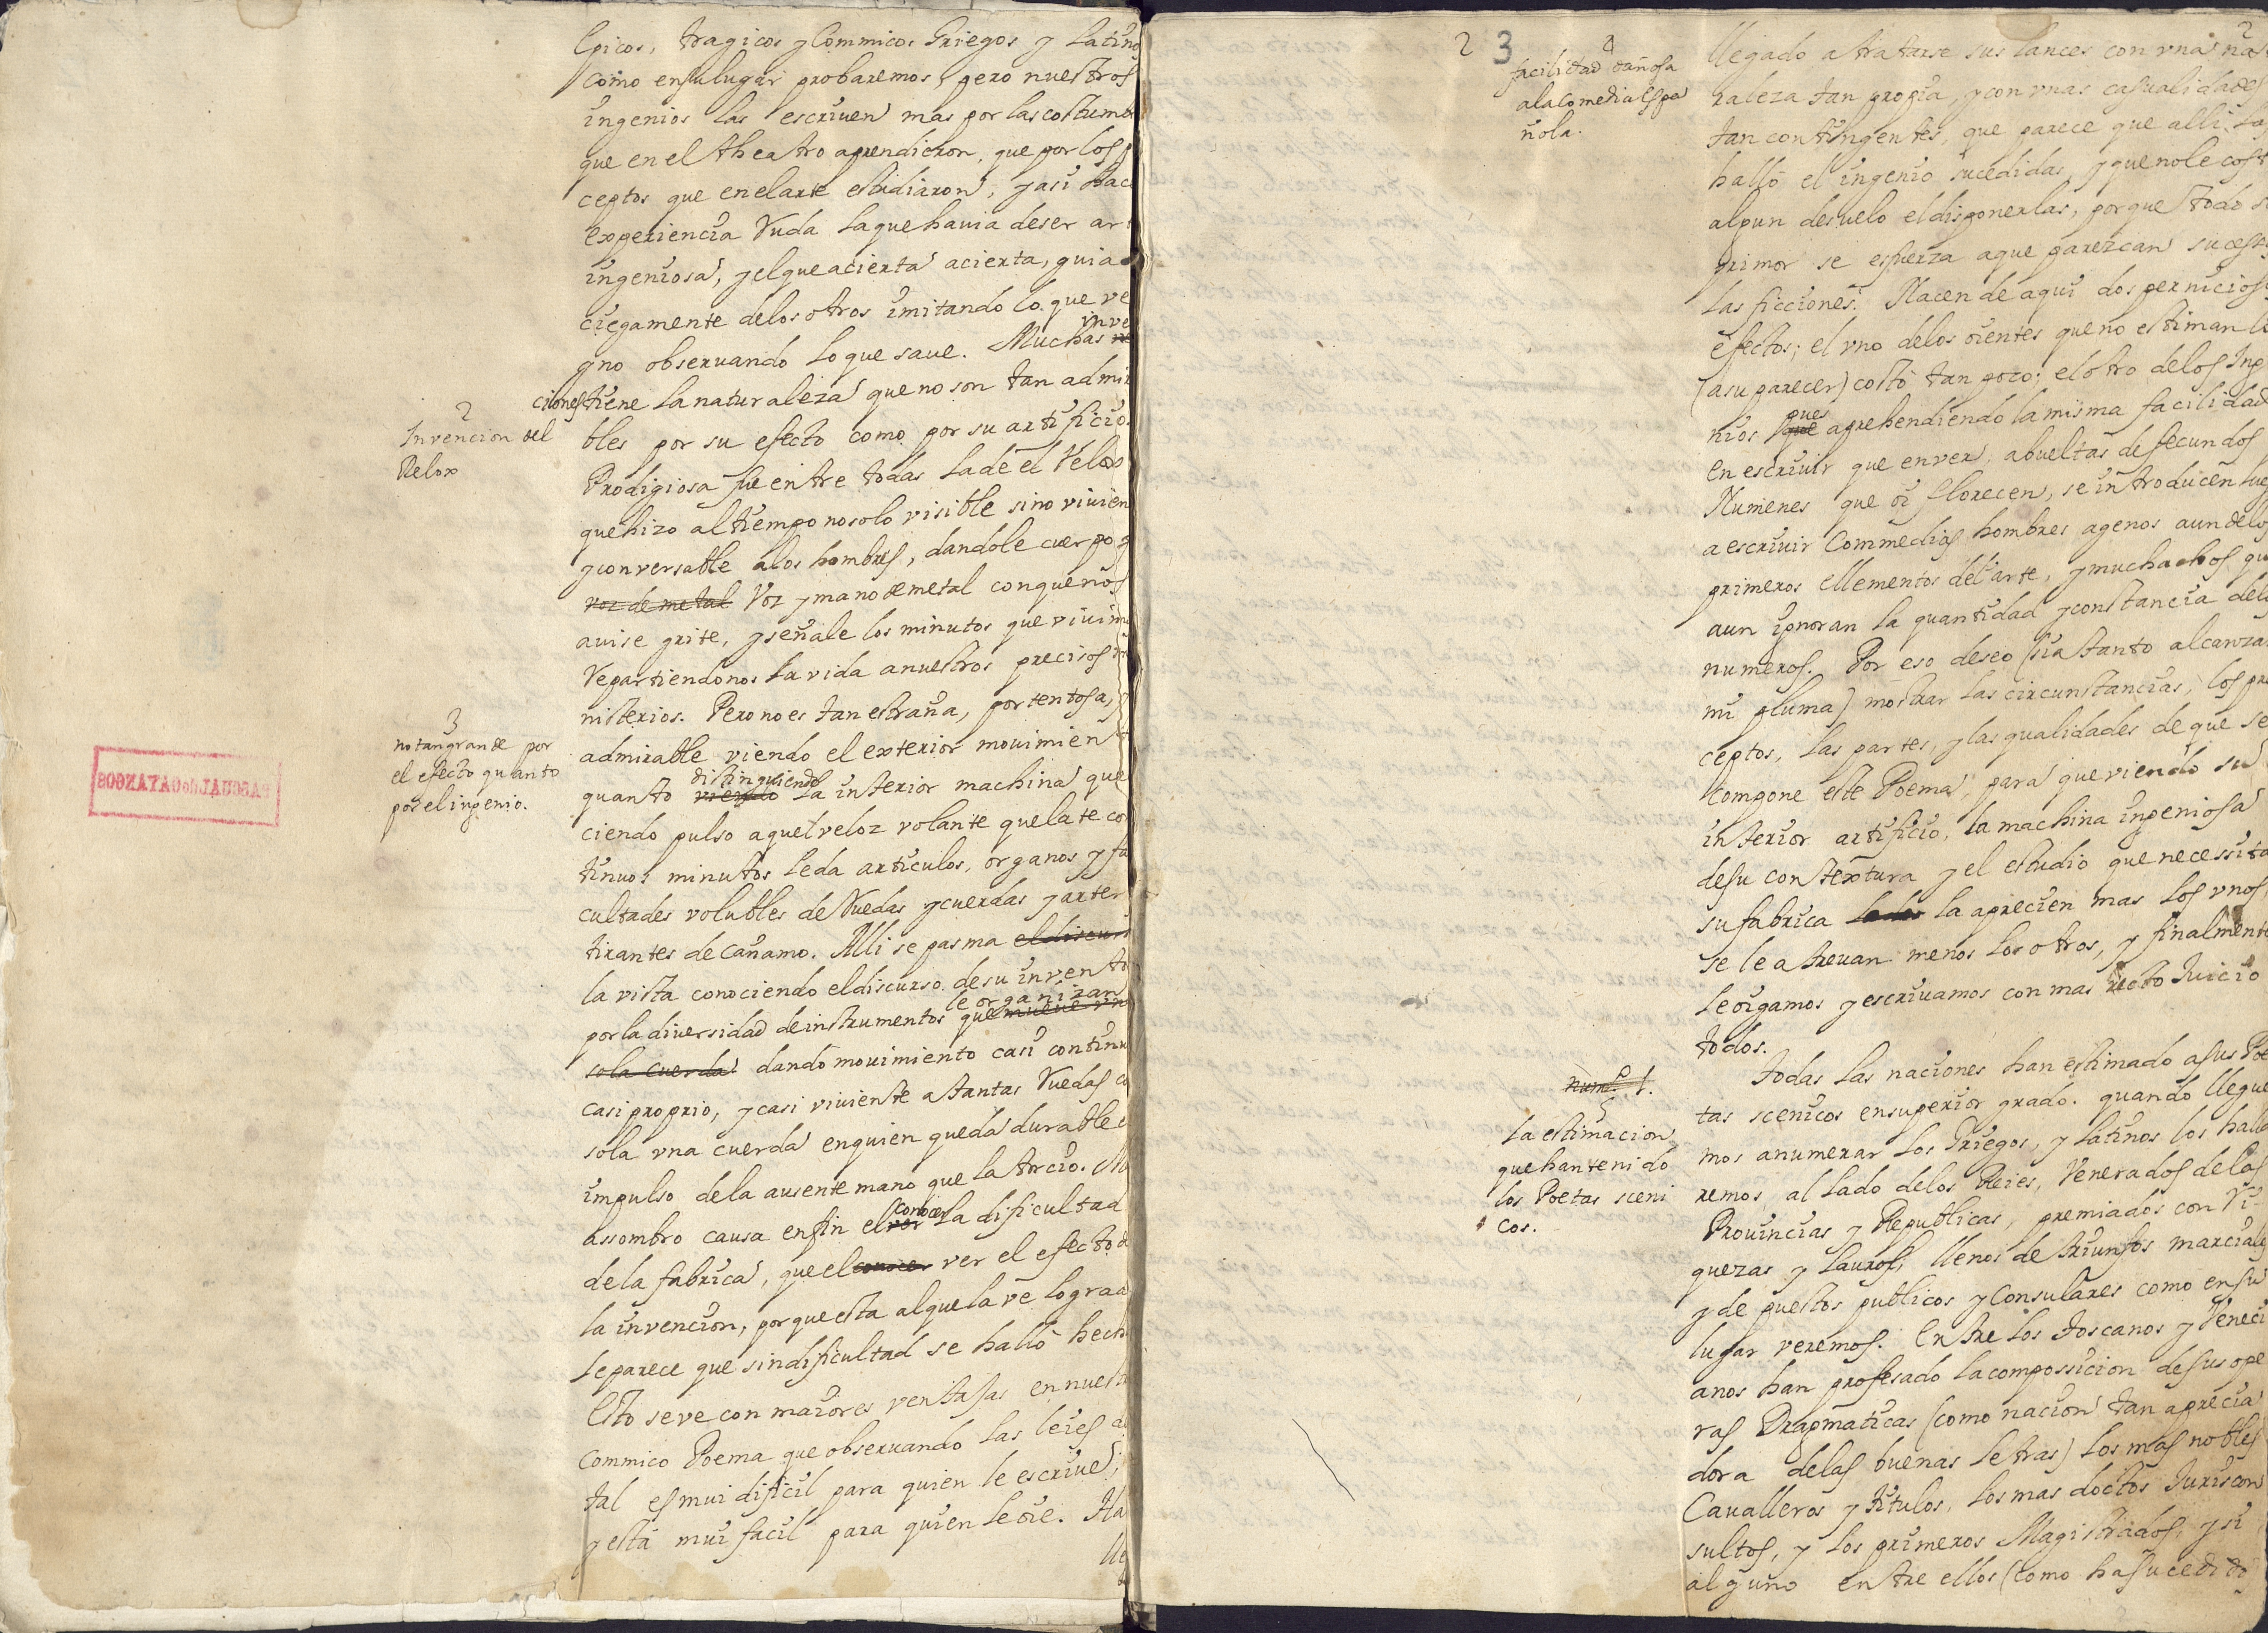 Epicos, tragicos y Commicos Griegos y Latino
como en su lugar probaremos, pero nuestros
ingenios las escriuen mas por las costumb
que en el theatro aprendieron, que por los p
ceptos que en el arte estudiaron, y asi hace
experiencia ruda la que hauia de ser ar
ingeniosa, y el que acierta acierta, guia
ciegamente de los otros imitando lo que ve
y no obseruando lo que saue. Muchas inve
ciones tiene la naturaleza que no son tan admi
bles por su efecto como por su artificio.
Prodigiosa fue entre todas la de el relox
que hizo al tiempo no solo visible sino vivien
y conversable a los hombres, dandole cuerpo y
voz de metal voz y mano de metal con que nos
auise grite, y señale los minutos que vivim
repartiendonos la vida a nuestros precisos
nisterios. Pero no es tan estraña, portentosa,
admirable viendo el exterior mouimien
quanto viendo distinguiendo la interior machina que
ciendo pulso aquel veloz volante que late co
tinuos minutos le da articulos, organos y fa
cultades volubles de ruedas y cuerdas y arter
tirantes de cañamo. Alli se pasma el discur
la vista conociendo el discurso de su invento
por la diversidad de instrumentos que le organizan mueve vna
sola cuerda dando mouimiento casi continu
casi proprio, y casi viviente a tantas ruedas co
sola vna cuerda en quien queda durable
impulso de la ausente mano que la torcio. M
assombro causa en fin el ver conocer la dificultad
de la fabrica, que el conocer ver el efecto d
la invencion, porque esta al que la ve lograd
le parece que sin dificultad se halló hech
Esto se ve con maiores ventajas en nuest
Commico Poema que obseruando las leies
tal es mui dificil para quien le escriue,
y está mui facil para quien le oie. Ha
lle
2
Invencion del
Relox
3
no tan grande por
el efecto quanto
por el ingenio.
PASCUAL DE GAYANGOS
2 3
2
4
facilidad dañosa
a la Comedia Espa
ñola.
llegado a tratarse sus lances con vna natu
raleza tan propia, y con vnas casualidades
tan contingentes, que parece que alli la
halló el ingenio sucedidas, y que no le cost
algun desuelo el disponerlas, porque todo s
primor se esfuerza a que parezcan suces
las ficciones. Nacen de aqui dos pernicios
efectos; el vno de los oientes que no estiman l
(a su parecer) costó tan poco; el otro de los Inge
nios que pues aprehendiendo la misma facilidad
en escriuir que en ver, a bueltas de fecundos
Numenes que oi florecen, se introducen lue
a escriuir Commedias hombres agenos aun de lo
primeros ellementos del arte, y muchachos qu
aun ignoran la quantidad y constancia de lo
numeros. Por eso deseo (si a tanto alcanza
mi pluma) mostrar las circunstancias, los pre
ceptos, las partes, y las qualidades de que se
compone este Poema, para que viendo su
interior artificio, la machina ingeniosa
de su contextura y el estudio que necessita
su fabrica la aprecien mas los vnos,
se le atreuan menos los otros, y finalmente
le oigamos y escriuamos con mas recto Juicio
todos.
Todas las naciones han estimado a sus Poe
tas scenicos en superior grado. quando llegue
mos a numerar los Griegos, y Latinos los halla
remos al lado de los Reies, Venerados de las
Prouincias y Republicas, premiados con Ri
quezas y Lauros, llenos de triunfos marciale
y de puestos publicos y Consulares como en su
lugar veremos. Entre los toscanos y Veneci
anos han profesado la compossicion de sus ope
ras Dragmaticas (como nacion tan aprecia
dora de las buenas letras) los mas nobles
Caualleros y titulos, los mas doctos Juriscon
sultos, y los primeros Magistrados, y si
alguno entre ellos (como ha sucedido
num.º 1.
5
La estimacion
que han tenido
los Poetas sceni
cos.